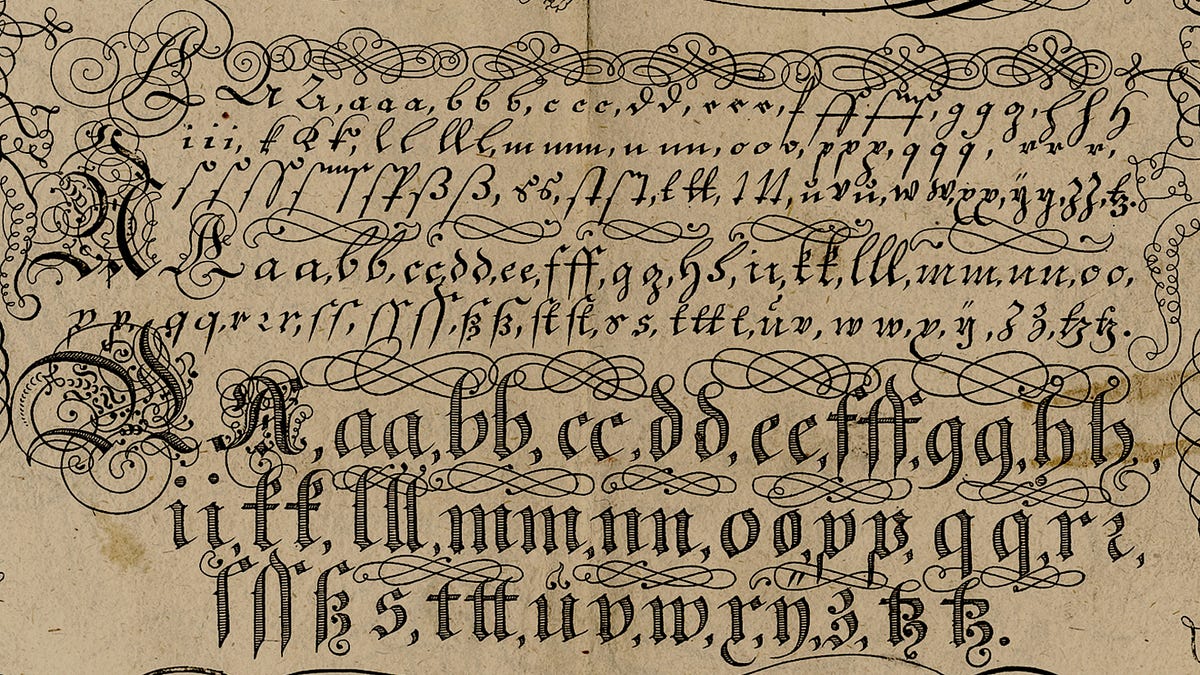 A A A, a a a, b b b, c c c, d d, e e e, f ff ff, g g g, h h h
i i i, k k k, l l ll ll, m mm, n nn, o o o, p p p, q q q, r r r,
ſ ſ ſſ ſſ ß ß, s s, ſt ſt, t tt, t t t, u v u, w w, x x, ÿ y, z z, tz.
A A a a, b b, cc, dd, ee, f ff, g g, h h, i i, k k, l ll, m m, nn, o o,
p p, q q, r r r, ſ ſ, ſſ ſſ, ß ß, ſt ſt, s s, t tt t, ů v, w w, x, ÿ, z z, tz tz.
A, a a, b b, c c, d d, e e, f ff, g g, h h,
i i, k k, l ll, m m, n n, o o, p p, q q, r r,
ſ ſſ ß s, t tt, ů v, w, x, ÿ, z, tz tz.